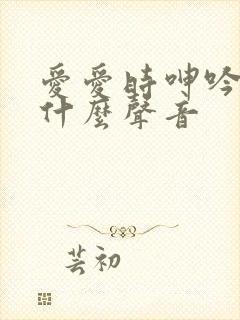 愛愛時呻吟
什麼聲音
芸初